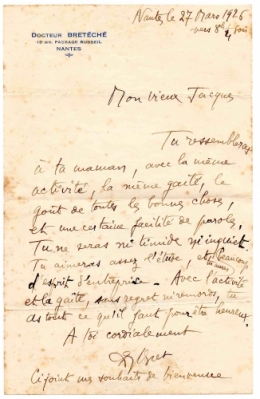 DOCTEUR BRETÉCHÉ
19 bis, PASSAGE RUSSEIL
NANTES
Nantes, le 27 Mars 1926
vers 8h du soir
Mon vieux Jacques
Tu ressembleras
à ta maman, avec la même
activité, la même gaîté, le
goût de toutes les bonnes choses,
et une certaine facilité de paroles,
Tu ne seras ni timide ni inquiet.
Tu aimeras assez l'étude, et beaucoup
d'esprit d'entreprise - Avec l'activité
et la gaîté, sans regret ni remords, tu
as tout ce qu'il faut pour être heureux.
A toi cordialement
Ci joint mes souhaits de bienvenue